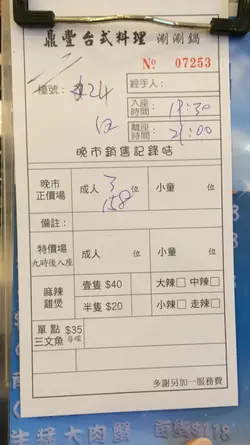 鼎豐台式料理 涮涮鍋
No 07253
檯號： 24 經手人：
位 入座時間： 19:30
離座時間： 21:00
晚市銷售記錄咭
晚市正價場 成人 3 位 小童 位
158
備註：
特價場 九時後入座 成人 位 小童 位
麻辣雞煲 壹隻 $40 大辣□ 中辣□
半隻 $20 小辣□ 走辣□
單點 $35
三文魚 每碟
多謝另加一服務費